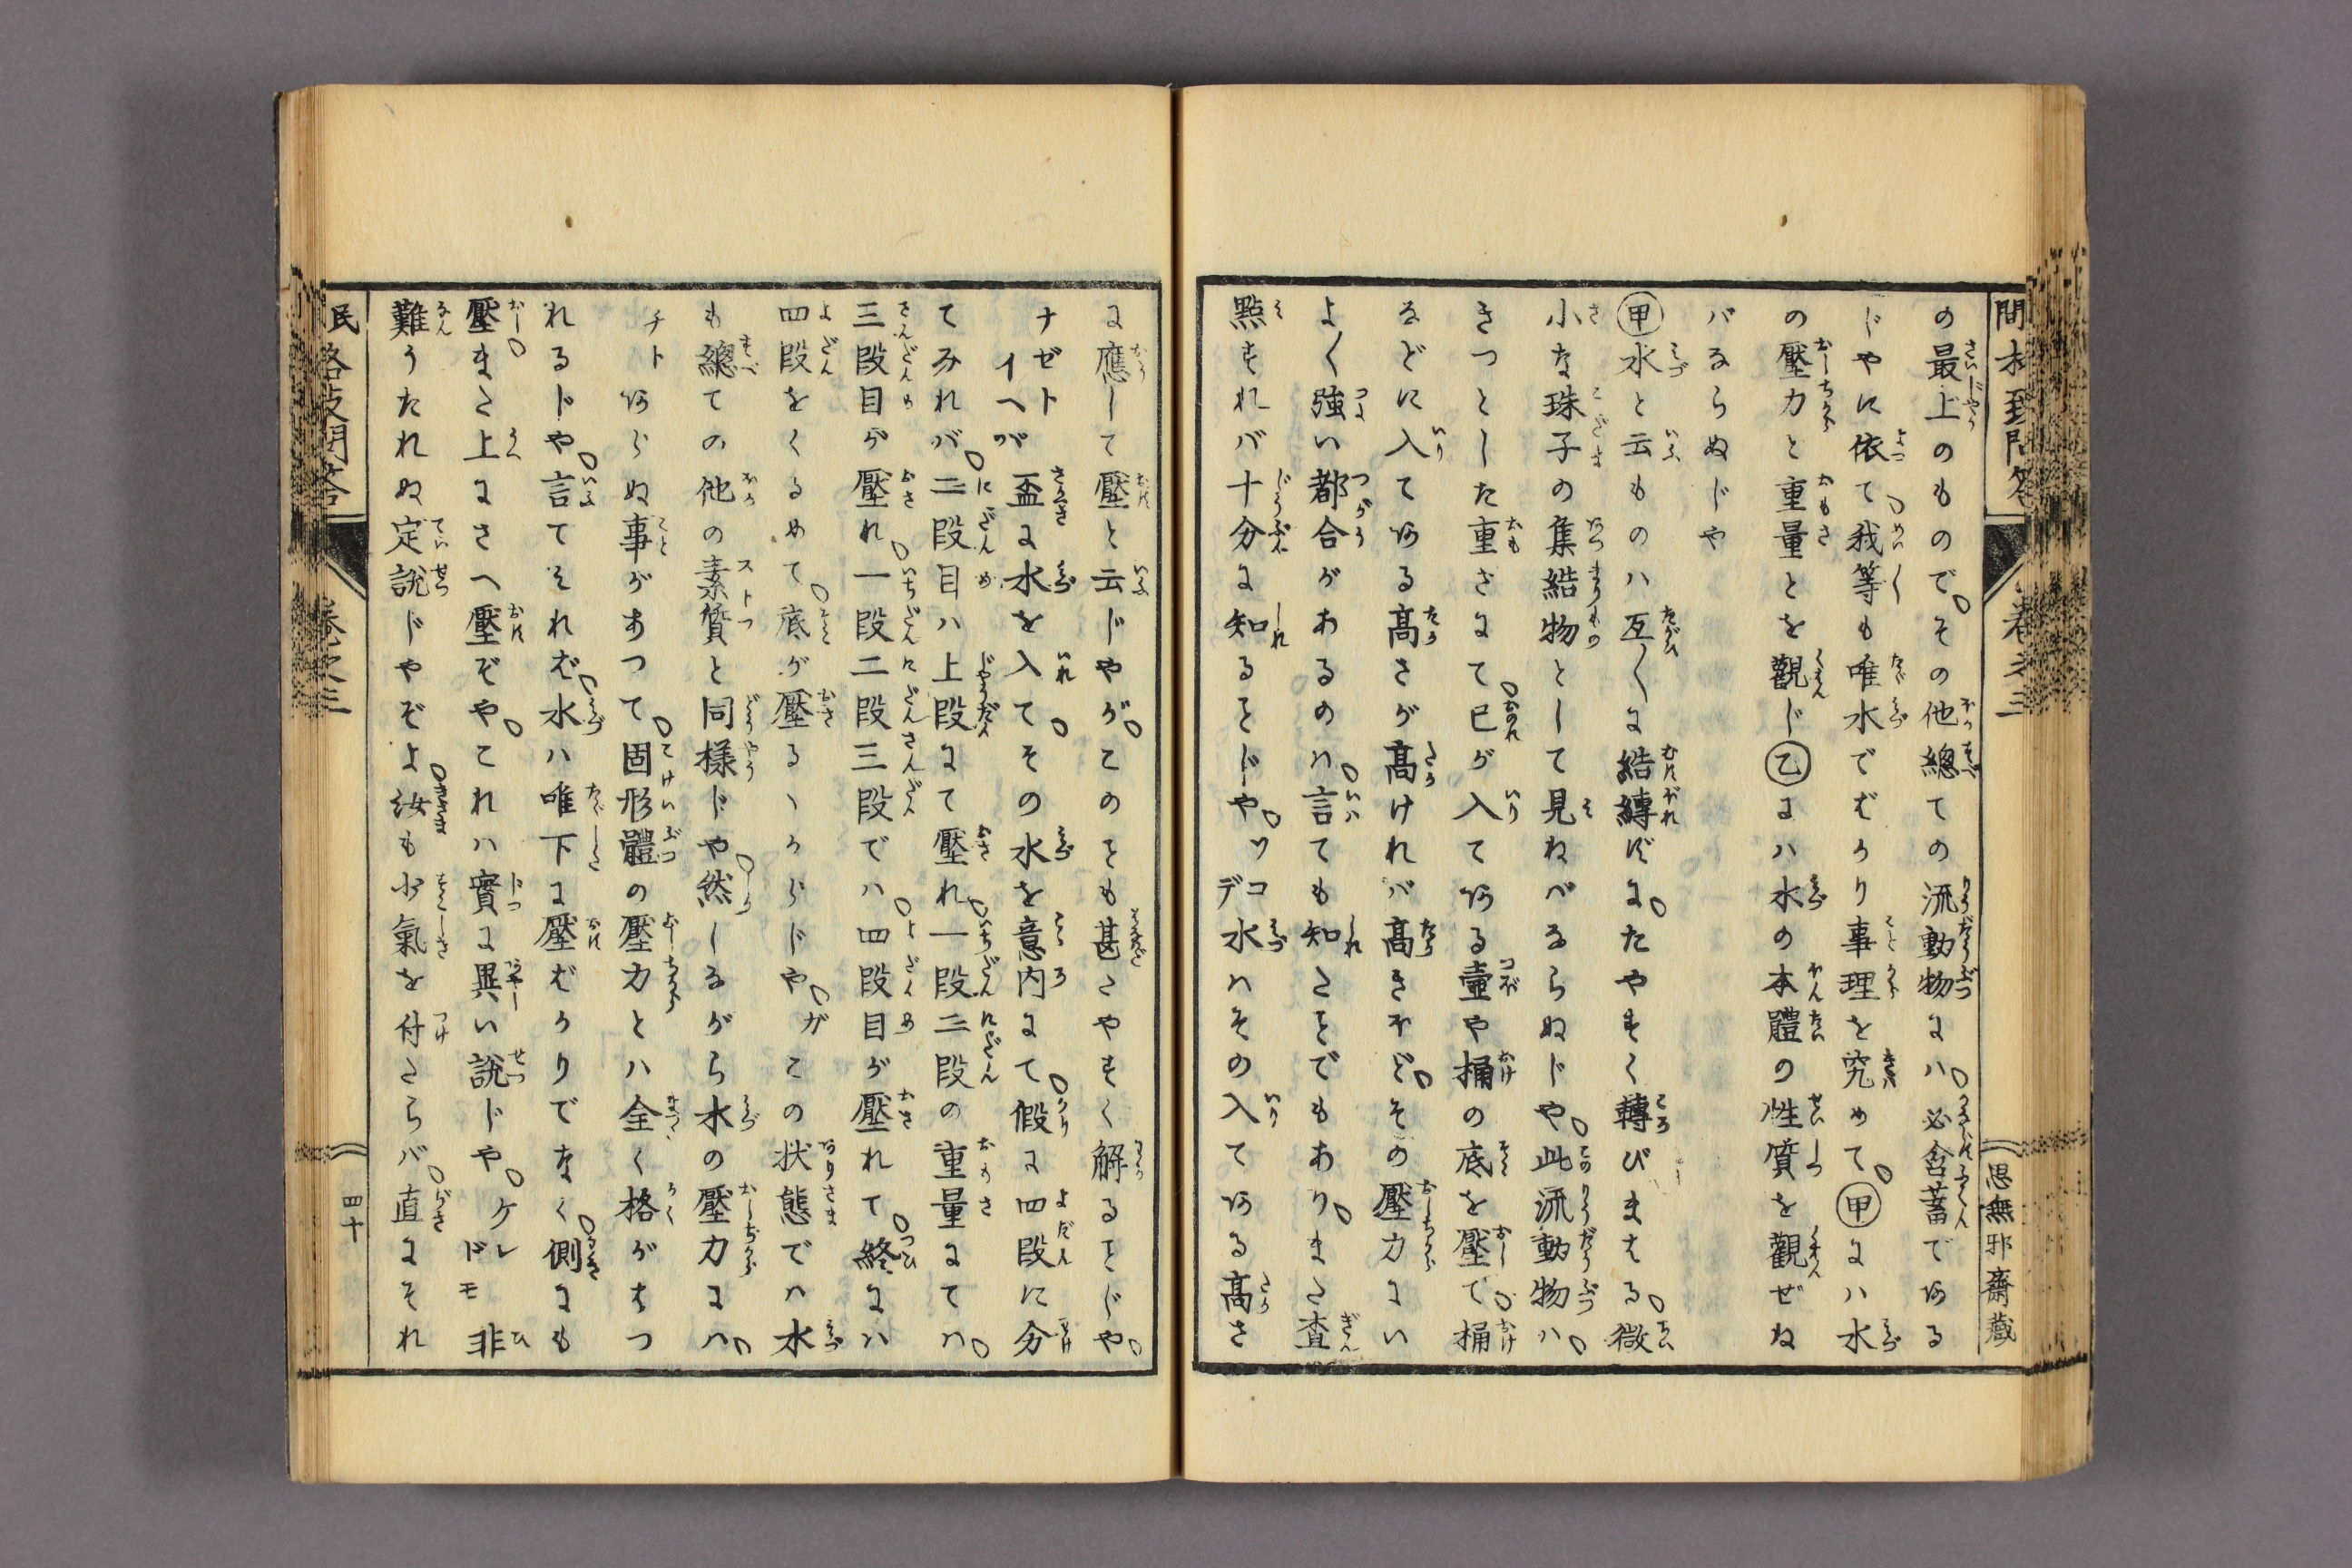 の最上のものでその他總ての流動物にハ必含蓄である
じやに依て我等も唯水でばかり事理を究めて甲にハ水
の壓力と重量とを觀じ乙にハ水の本體の性質を觀ぜね
バならぬじや
甲水と云ものハ互〱に結縛ずにたやすく轉びまする微
小な珠子の集結物として見ねバならぬじや此流動物ハ
きつとした重さにて已が入てある壷や桶の底を壓て桶
などに入てある高さが高ければ高きほどその壓力にい
よ〱強い都合があるのハ言ても知たことでもありまた査
點すれバ十分に知ることじやソコデ水ハその入てある高さ
に應して壓と云じやがこのことも甚たやすく解ることじや
ナゼトイヘバ盃に水を入てその水を意内にて假に四段に分
てみれバ二段目ハ上段にて壓れ一段二段の重量にてハ
三段目が壓れ一段二段三段でハ四段目が壓れて終にハ
四段をくるめて底が壓るゝからじやガこの状態でハ水
も總ての他の素質と同様じや然しながら水の壓力にハ
チトあらぬ事があつて固形體の壓力とハ全く格がちつ
れるじや言てそれば水ハ唯下に壓ばかりでなく側にも
壓また上にさへ壓ぞやこれハ實に異い說じやケレドモ非
難うたれぬ定說じやぞよ汝も少氣を付たらバ直にそれ
卷之三
思無邪齋藏
卷之三
四十